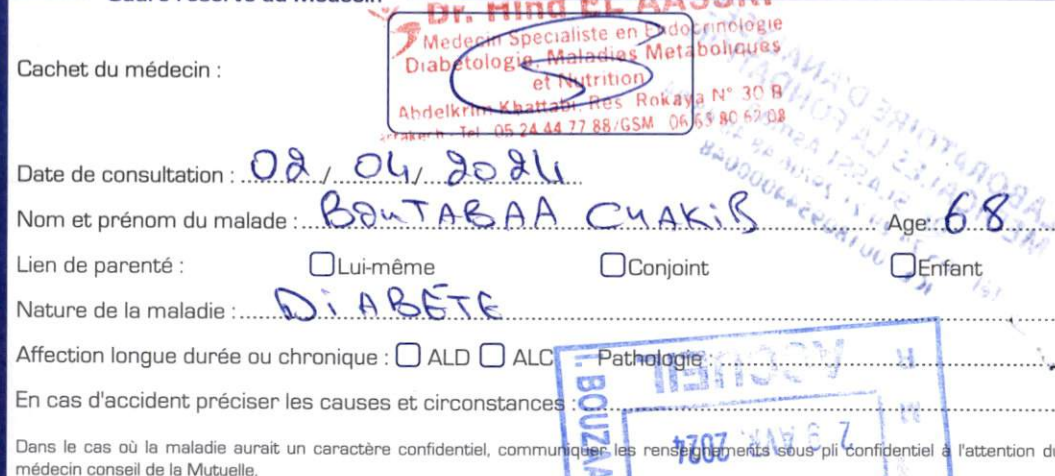 Cadre réservé au Médecin
Cachet du médecin :
Dr. Hind EL
Medecin Specialiste en Endocrinologie
Diabétologie, Maladies Metaboliques
et Nutrition
Abdelkrim Khattabi, Res Rokaya N° 30 B
Tel 05 24 44 77 88/GSM
Date de consultation : 02/04/2024
Nom et prénom du malade : BOUTABAA CHAKIB Age: 68
Lien de parenté : Lui-même Conjoint Enfant
Nature de la maladie : DiABÉTE
Affection longue durée ou chronique : ALD ALC Pathologie :
ACCUEIL
En cas d'accident préciser les causes et circonstances :
I. BOUZAA
AVR. 2024
Dans le cas où la maladie aurait un caractère confidentiel, communiquer les renseignements sous pli confidentiel à l'attention du
médecin conseil de la Mutuelle.